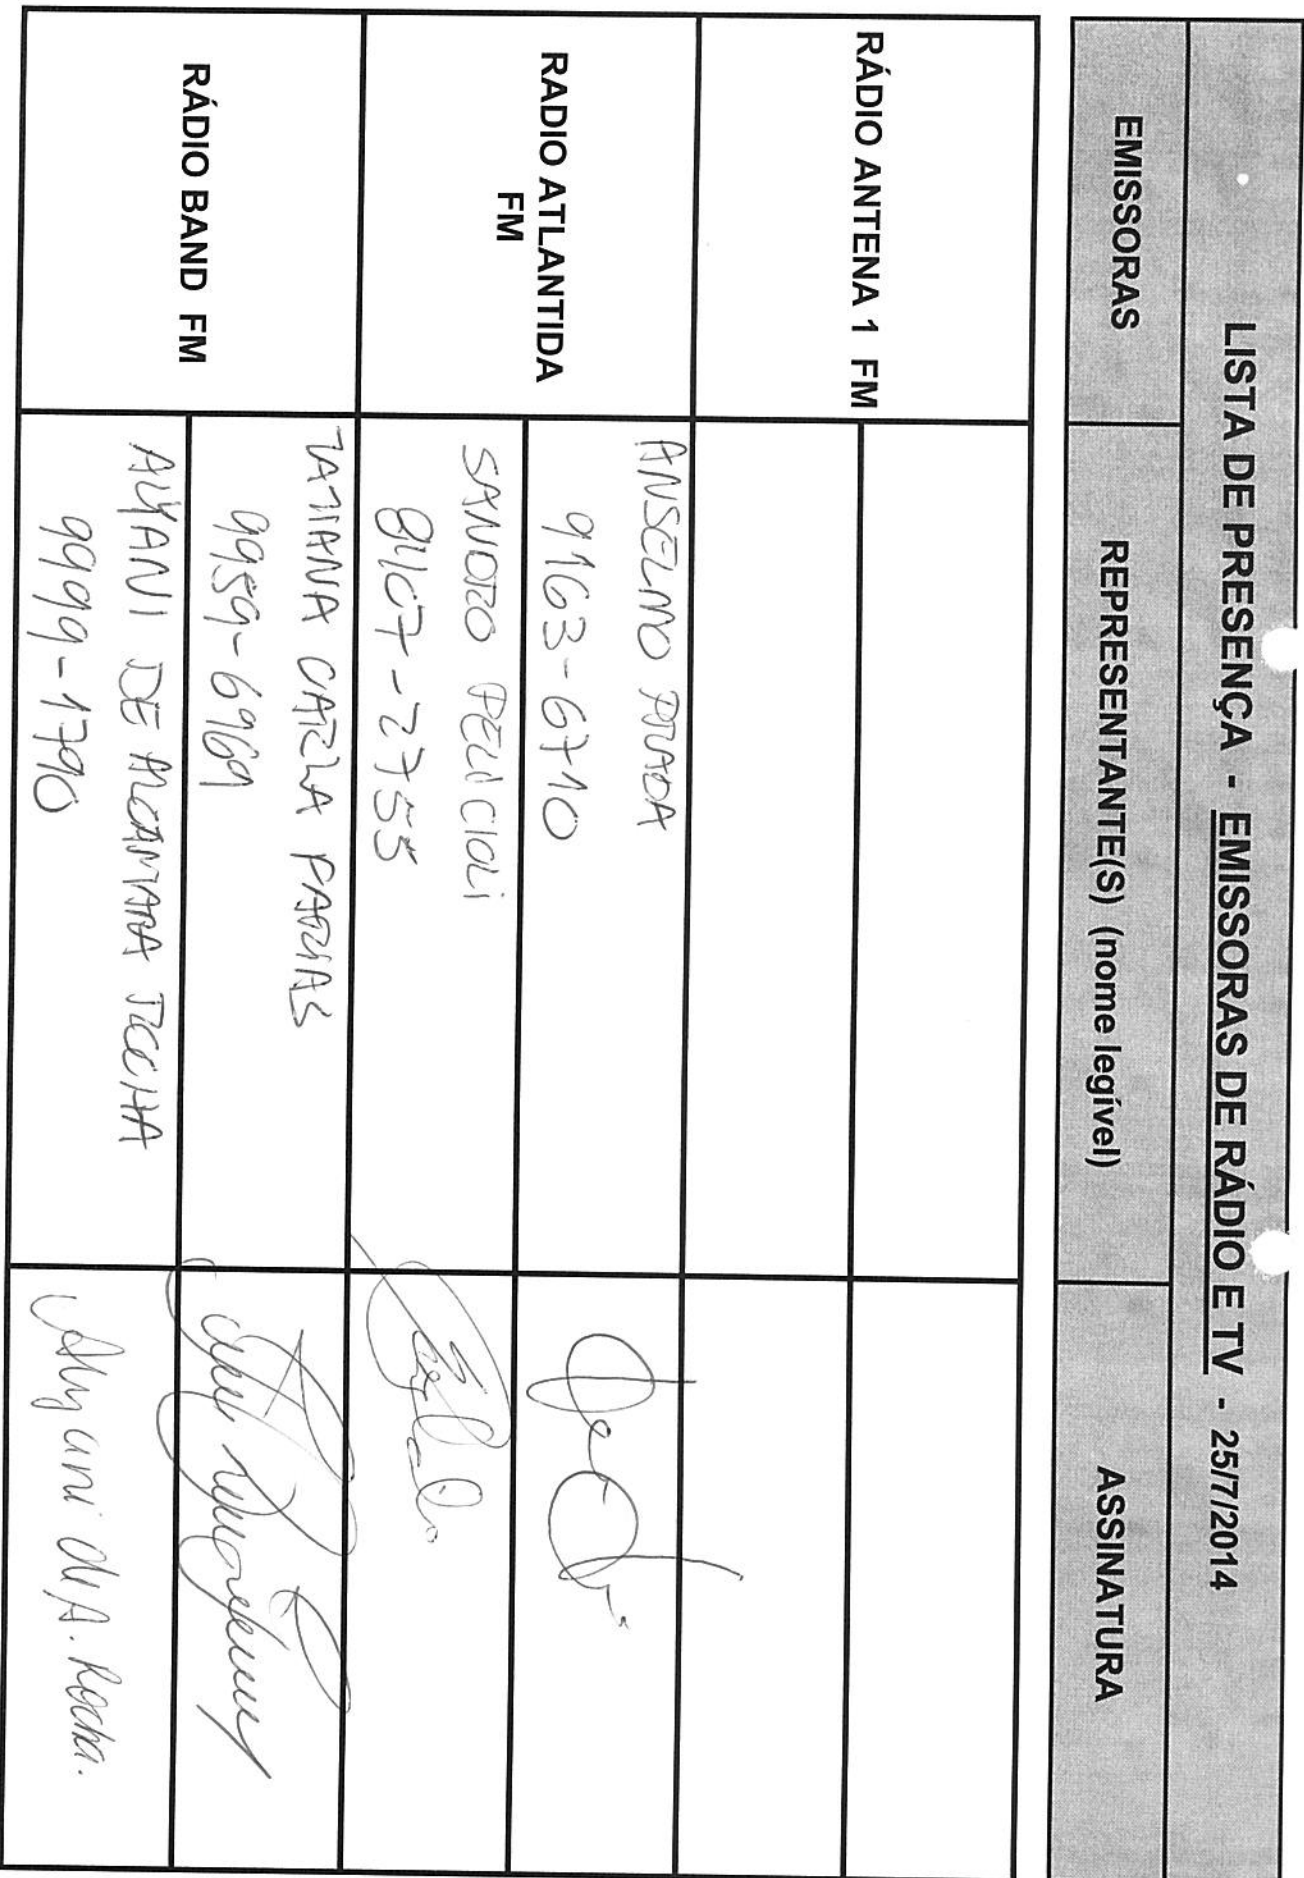 LISTA DE PRESENÇA - EMISSORAS DE RÁDIO E TV - 25/7/2014
EMISSORAS REPRESENTANTE(S) (nome legível) ASSINATURA
RÁDIO ANTENA 1 FM
RADIO ATLANTIDA
FM
ANSELMO PRADA
9163-6710
SANDRO PELICIOLI
8407-2755
RÁDIO BAND FM
TATIANA CARLA FARIAS
9959-6969
ALYANI DE ALCANTARA ROCHA
9999-1790
Alyani de A. Rocha.